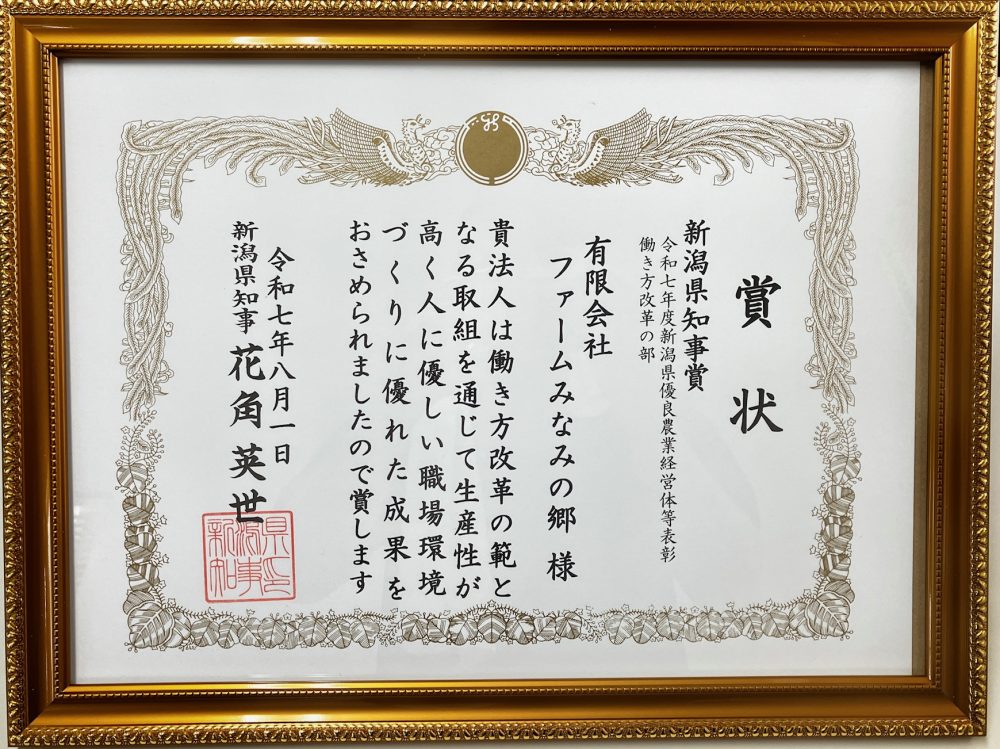 賞状
新潟県知事賞
令和七年度新潟県優良農業経営体等表彰
働き方改革の部
有限会社
ファームみなみの郷 様
貴法人は働き方改革の範と
なる取組を通じて生産性が
高く人に優しい職場環境
づくりに優れた成果を
おさめられましたので賞します
令和七年八月一日
新潟県知事 花角英世
新潟県知事之印